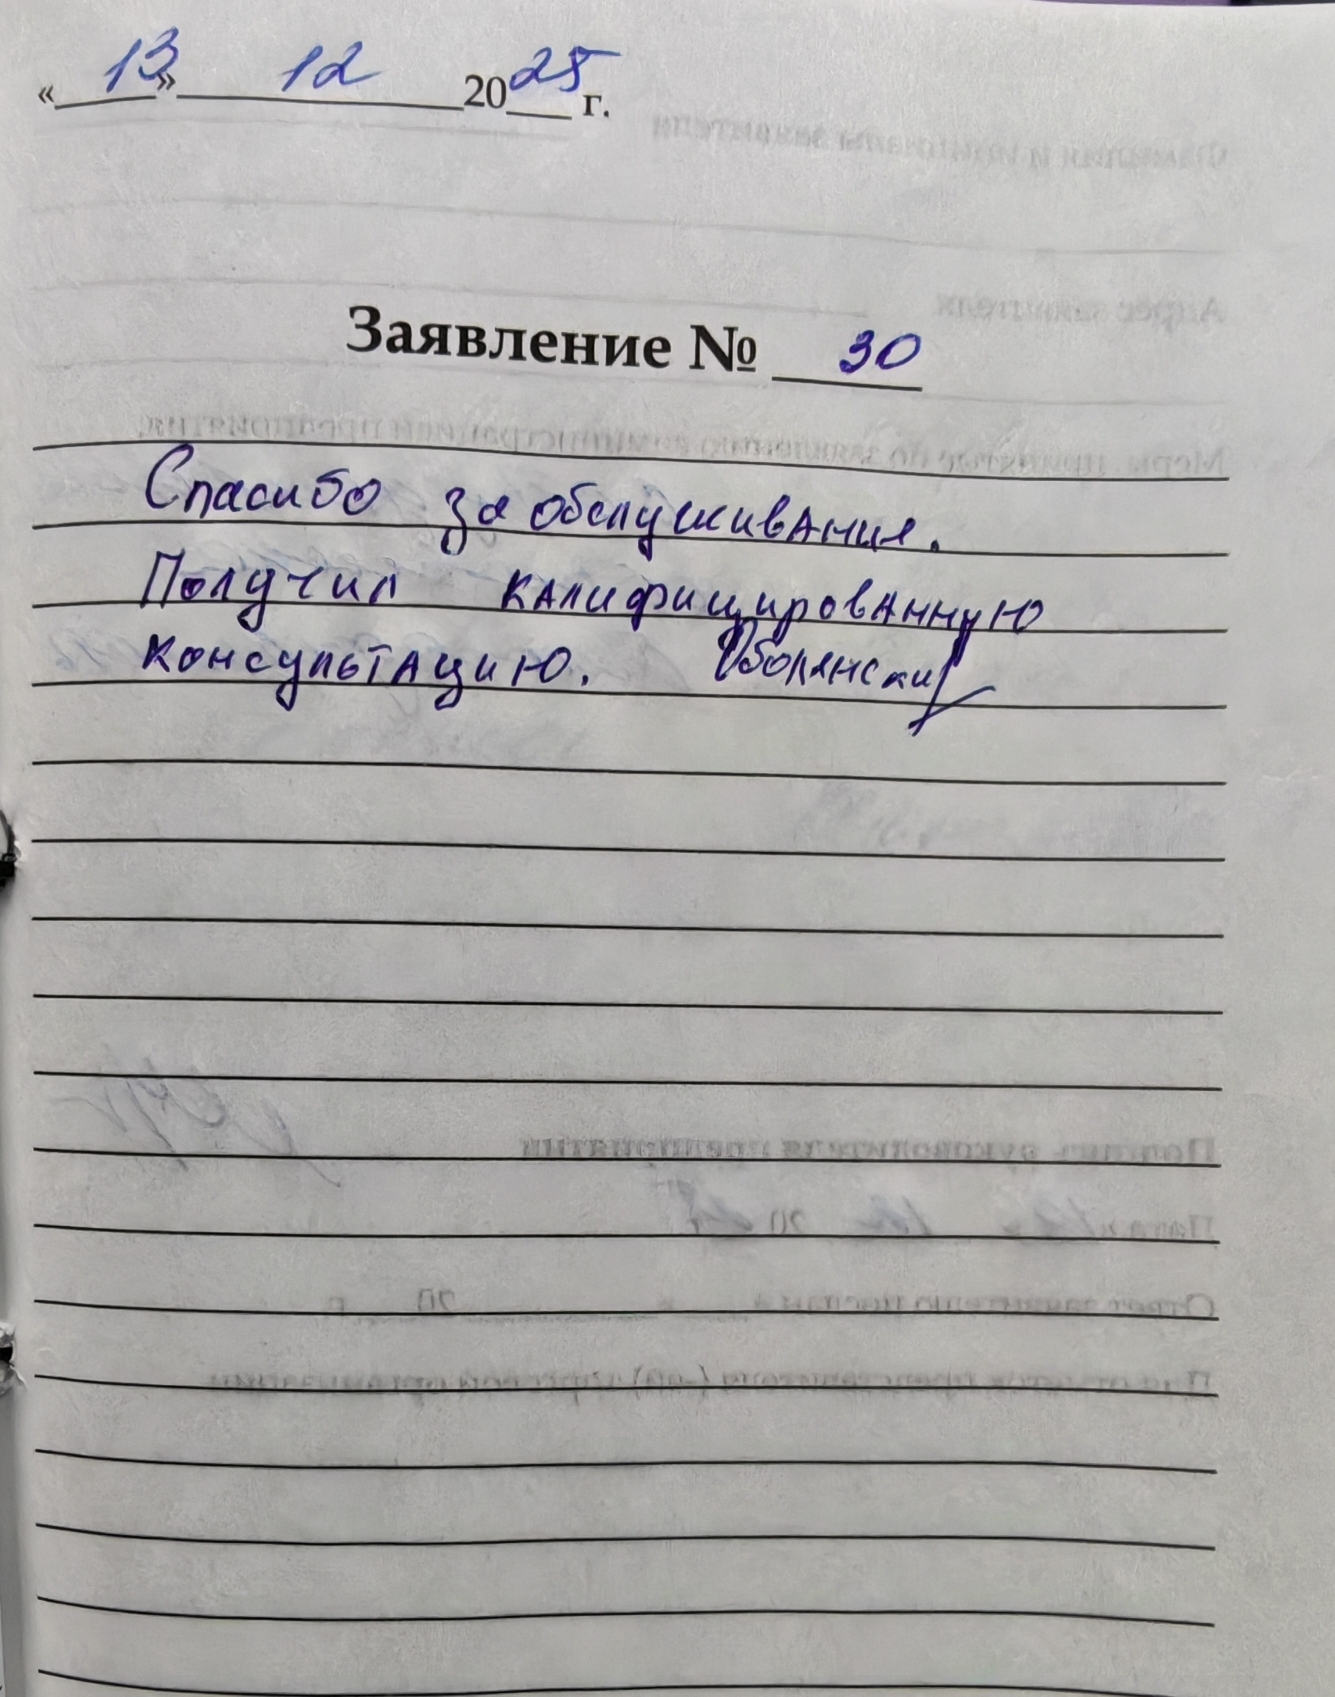 « 13 » 12 2025 г.
Заявление № 30
Спасибо за обслуживание.
Получил калифицированную
консультацию. Оболянский